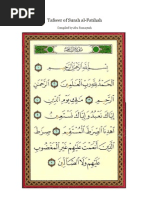 Tafseer of Surah al-Fatihah
بِسْمِ اللَّهِ الرَّحْمَٰنِ الرَّحِيمِ
الْحَمْدُ لِلَّهِ رَبِّ الْعَالَمِينَ الرَّحْمَٰنِ
الرَّحِيمِ مَالِكِ يَوْمِ الدِّينِ
إِيَّاكَ نَعْبُدُ وَإِيَّاكَ نَسْتَعِينُ اهْدِنَا
الصِّرَاطَ الْمُسْتَقِيمَ صِرَاطَ
الَّذِينَ أَنْعَمْتَ عَلَيْهِمْ غَيْرِ الْمَغْضُوبِ
عَلَيْهِمْ وَلَا الضَّالِّينَ